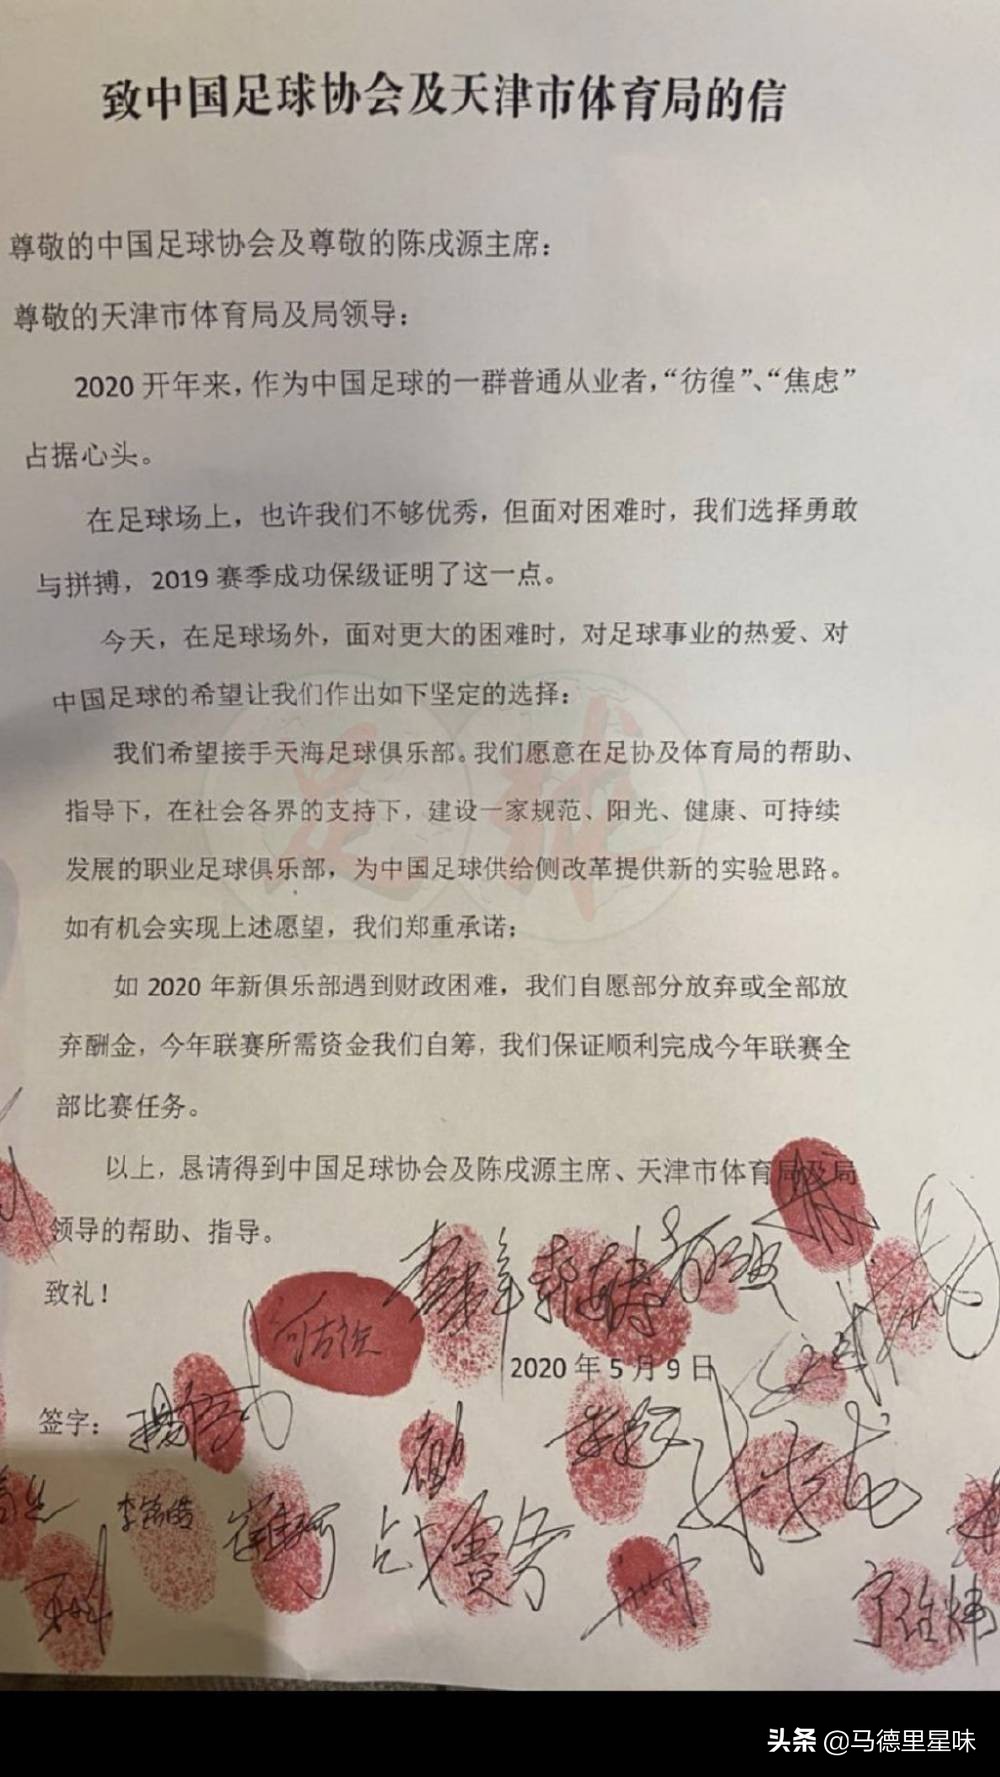 致中国足球协会及天津市体育局的信
尊敬的中国足球协会及尊敬的陈戌源主席：
尊敬的天津市体育局及局领导：
2020 开年来，作为中国足球的一群普通从业者，“彷徨”、“焦虑”
占据心头。
在足球场上，也许我们不够优秀，但面对困难时，我们选择勇敢
与拼搏，2019 赛季成功保级证明了这一点。
今天，在足球场外，面对更大的困难时，对足球事业的热爱、对
中国足球的希望让我们作出如下坚定的选择：
我们希望接手天海足球俱乐部。我们愿意在足协及体育局的帮助、
指导下，在社会各界的支持下，建设一家规范、阳光、健康、可持续
发展的职业足球俱乐部，为中国足球供给侧改革提供新的实验思路。
如有机会实现上述愿望，我们郑重承诺；
如 2020 年新俱乐部遇到财政困难，我们自愿部分放弃或全部放
弃酬金，今年联赛所需资金我们自筹，我们保证顺利完成今年联赛全
部比赛任务。
以上，恳请得到中国足球协会及陈戌源主席、天津市体育局及局
领导的帮助、指导。
致礼！
2020 年 5 月 9 日
签字：
足球
头条 @马德里星味